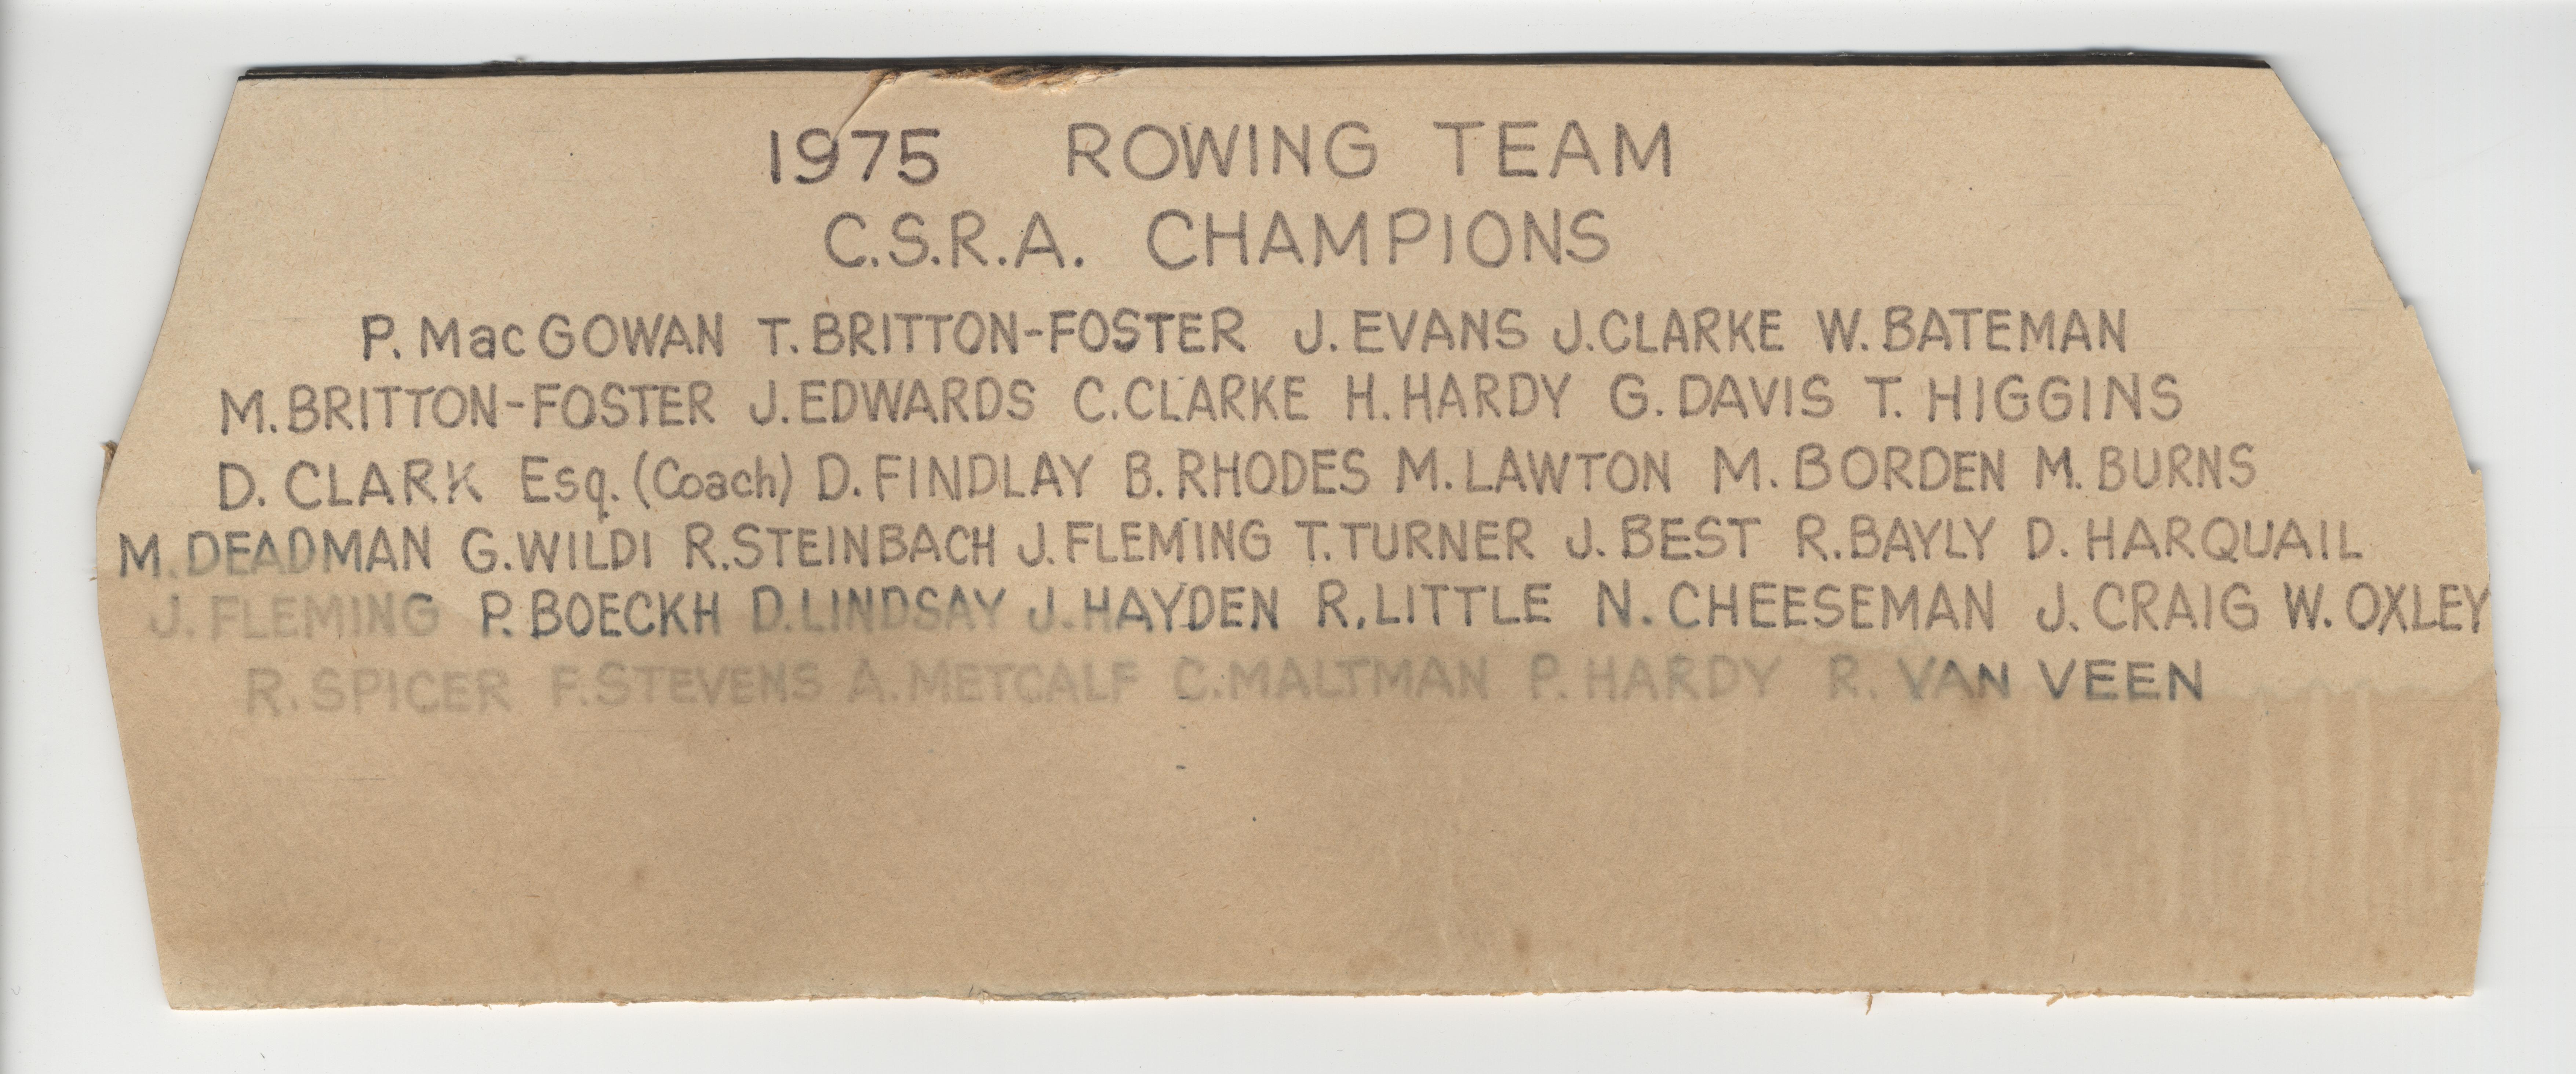 1975 ROWING TEAM
C.S.R.A. CHAMPIONS
P. MacGOWAN T. BRITTON-FOSTER J. EVANS J. CLARKE W. BATEMAN
M. BRITTON-FOSTER J. EDWARDS C. CLARKE H. HARDY G. DAVIS T. HIGGINS
D. CLARK Esq. (Coach) D. FINDLAY B. RHODES M. LAWTON M. BORDEN M. BURNS
M. DEADMAN G. WILDI R. STEINBACH J. FLEMING T. TURNER J. BEST R. BAYLY D. HARQUAIL
J. FLEMING P. BOECKH D. LINDSAY J. HAYDEN R. LITTLE N. CHEESEMAN J. CRAIG W. OXLEY
R. SPICER F. STEVENS A. METCALF C. MALTMAN P. HARDY R. VAN VEEN